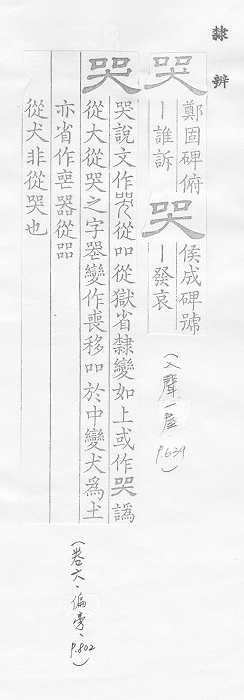 隸辨
哭 鄭固碑俯
丨誰訴 哭 侯成碑號
丨發哀
(入聲一屋、P.639)
哭 哭說文作哭從吅從獄省隸變如上或作哭譌
從犬從哭之字器變作喪移吅於中變犬爲土
亦省作喪器從㗊
從犬非從哭也
(卷六、偏旁、P.802)